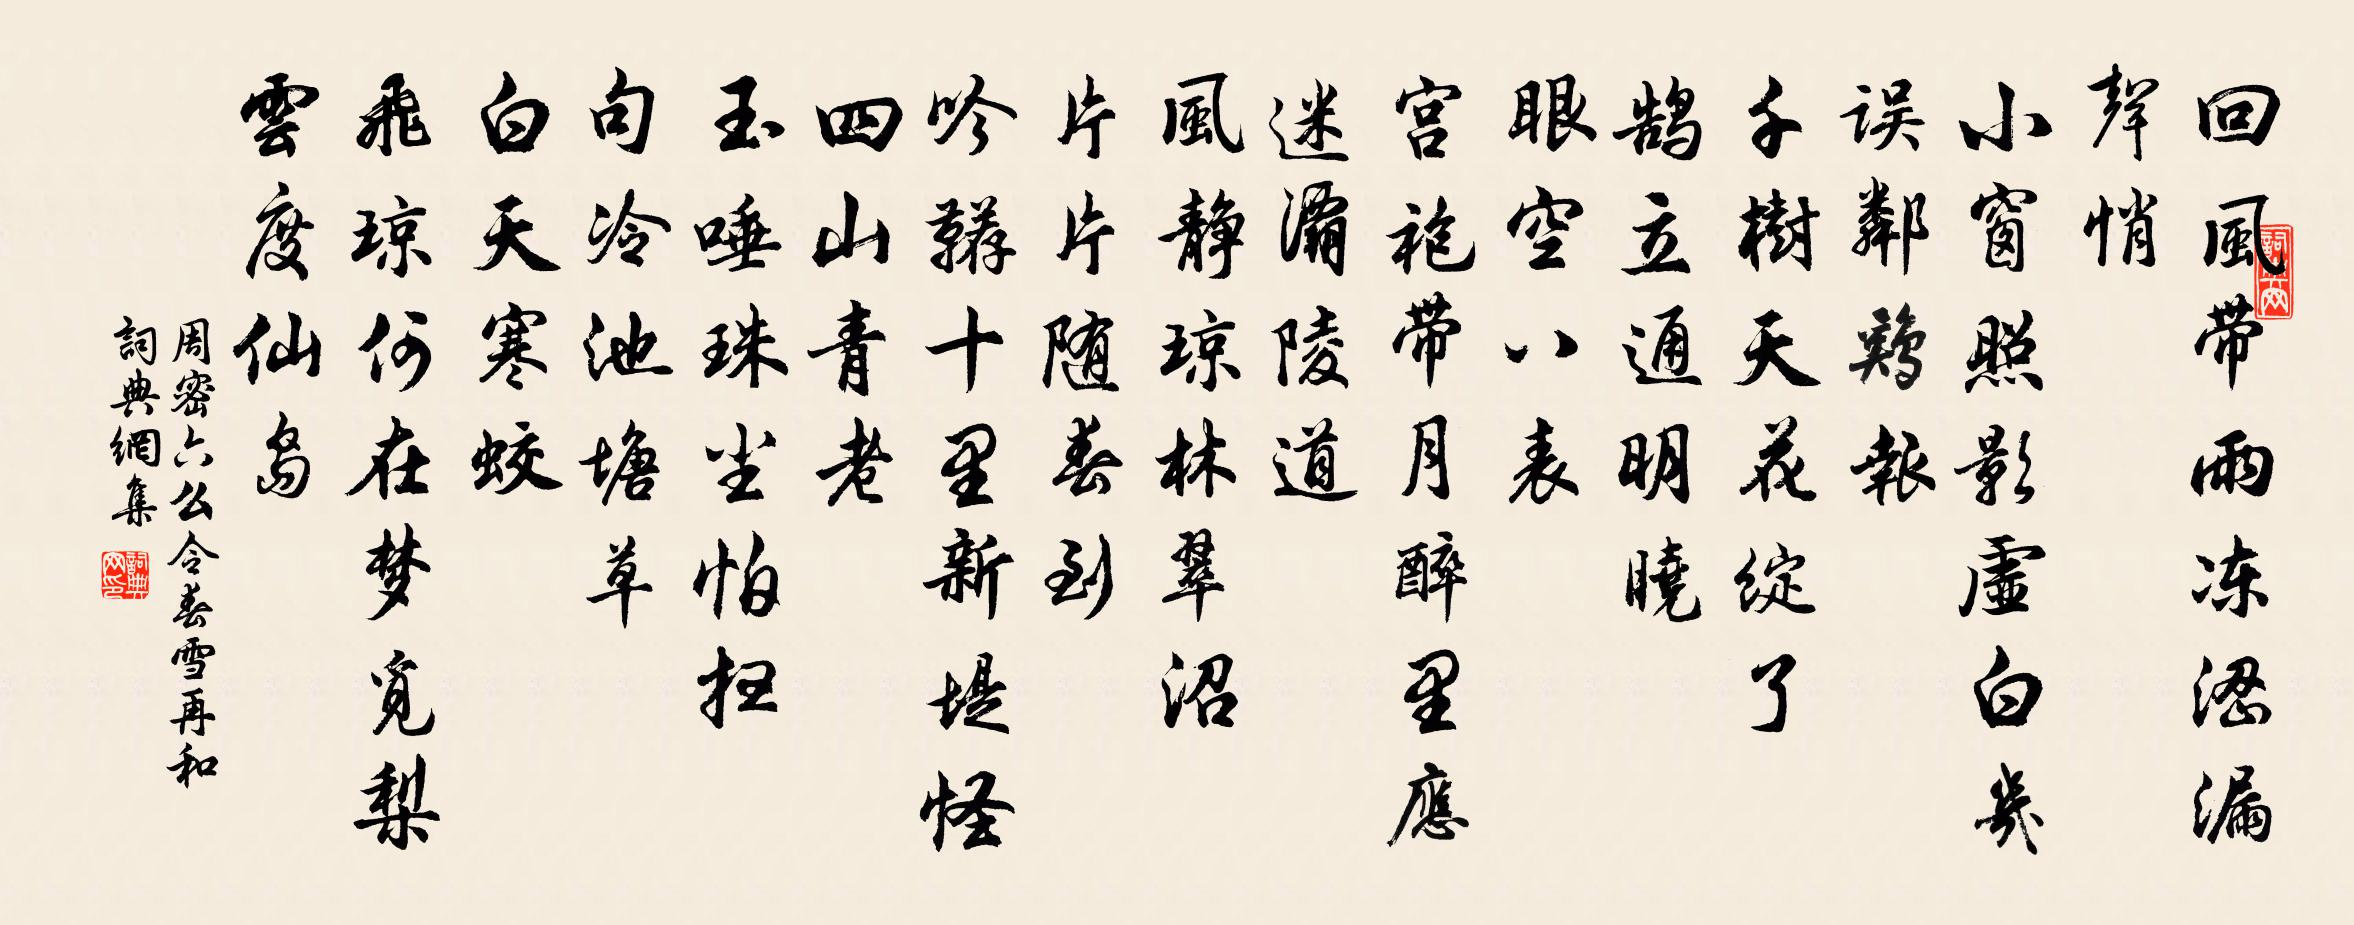 回風带雨冻澀漏
聲悄
小窗照影虛白幾
误鄰鷄報
千樹天花綻了
鹄立通明曉
眼空八表
宫袍带月醉里應
迷灞陵道
風静琼林翠沼
片片随春到
吟韝十里新堤怪
四山青老
玉唾珠尘怕扫
句冷池塘草
白天寒蛟
飛琼何在梦觅梨
雲度仙島
周密六么令春雪再和
詞典網集